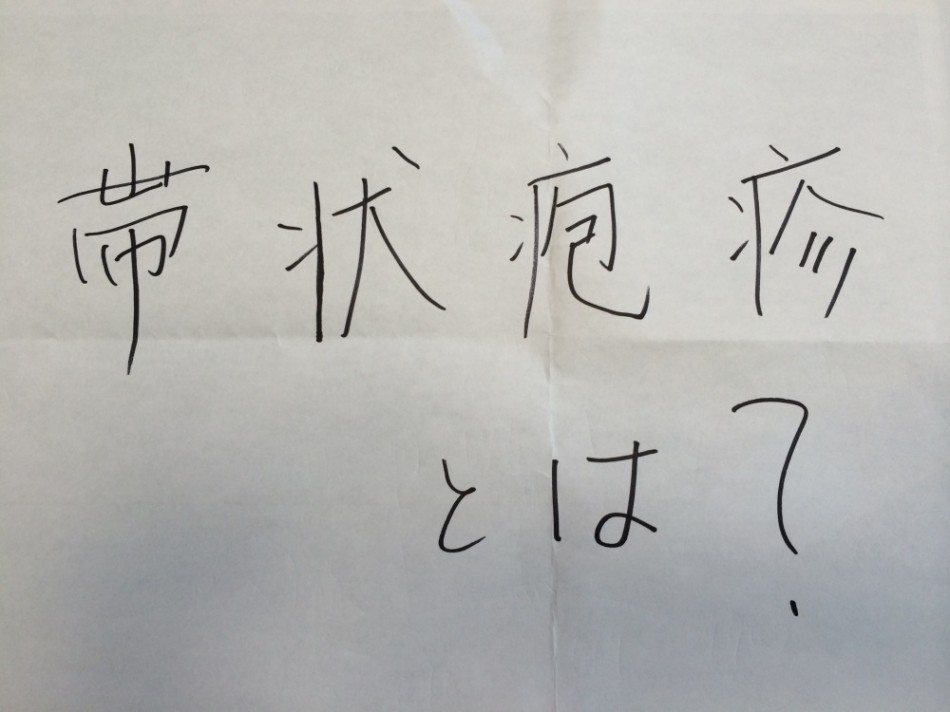 帯状疱疹
とは?